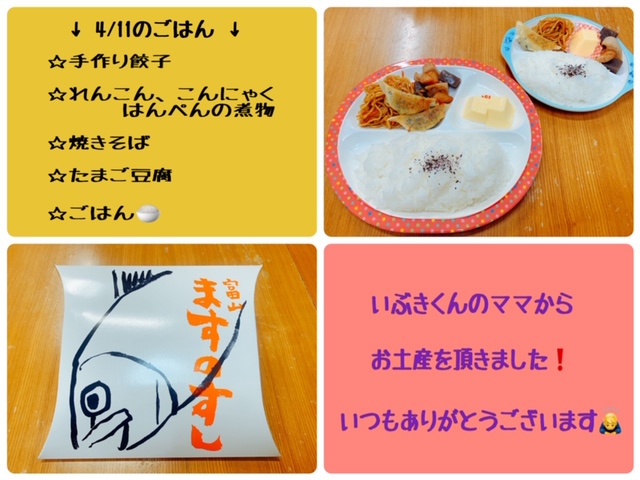 ↓ 4/11のごはん ↓
☆手作り餃子
☆れんこん、こんにゃく
はんぺんの煮物
☆焼きそば
☆たまご豆腐
☆ごはん🍚
富山
ますのすし
いぶきくんのママから
お土産を頂きました❗
いつもありがとうございます🙇